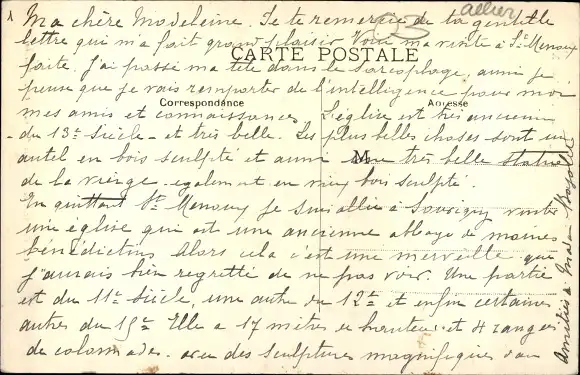 1 Ma chère Madeleine. Je te remercie de ta gentille
allier
lettre qui m'a fait grand plaisir. Voici ma visite à St Menoux
CARTE POSTALE
faite. J'ai passé ma tête dans le sarcophage, aussi je
pense que je vais remporter de l'intelligence pour moi
Correspondance
Adresse
mes amis et connaissances. L'église est très ancienne
- du 13e Siècle - et très belle. Les plus belles choses sont un
autel en bois sculpté et aussi une très belle statue
M
de la vierge également en vieux bois sculpté.
En quittant St Menoux je suis allée à Souvigny visiter
une église qui est une ancienne abbaye de moines
bénédictins. Alors cela c'est une merveille que
j'aurais bien regretté de ne pas voir. Une partie
est du 11e Siècle, une autre du 12e et enfin certaines
autres du 15e Elle a 17 mètres de hauteur et 4 rangées
de colonnades. avec des sculptures magnifiques
Amitiés à